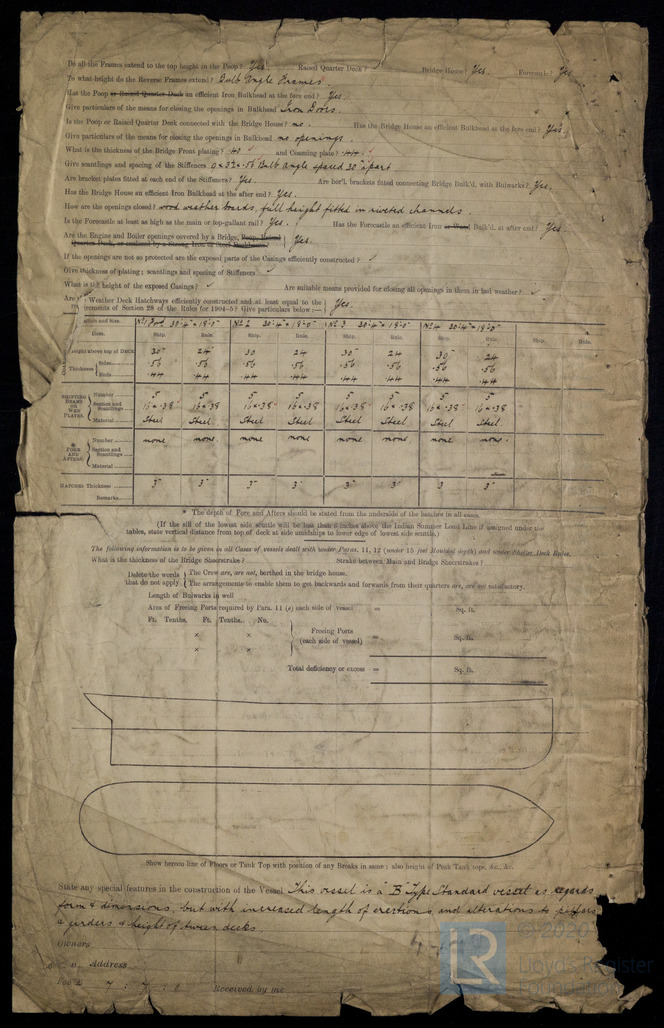 Do all the Frames extend to the top height in the Poop? Yes. Raised Quarter Deck? Bridge House? Yes. Forecastle? Yes
To what height do the Reverse Frames extend? Bulb Angle Frames.
Has the Poop or Raised Quarter Deck an efficient Iron Bulkhead at the fore end? Yes.
Give particulars of the means for closing the openings in Bulkhead Iron Doors.
Is the Poop or Raised Quarter Deck connected with the Bridge House? no. Has the Bridge House an efficient Bulkhead at the fore end? Yes.
Give particulars of the means for closing the openings in Bulkhead no openings.
What is the thickness of the Bridge Front plating? and Coaming plate? .44
Give scantlings and spacing of the Stiffeners Bulb angle spaced 30" apart
Are bracket plates fitted at each end of the Stiffeners? Yes. Are hor'l. brackets fitted connecting Bridge Bulk'd. with Bulwarks? Yes.
Has the Bridge House an efficient Iron Bulkhead at the after end? Yes.
How are the openings closed? wood weather boards, full height fitted in riveted channels.
Is the Forecastle at least as high as the main or top-gallant rail? Yes. Has the Forecastle an efficient Iron or Wood Bulk'd. at after end? Yes.
Are the Engine and Boiler openings covered by a Bridge, Poop, Raised
Quarter Deck, or enclosed by a Strong Iron or Steel Yes.
If the openings are not so protected are the exposed parts of the Casings efficiently constructed? ✓
Give thickness of plating; scantlings and spacing of Stiffeners ✓
What is the height of the exposed Casings? ✓ Are suitable means provided for closing all openings in them in bad weather? ✓
Weather Deck Hatchways efficiently constructed and at least equal to the
requirements of Section 28 of the Rules for 1904-5? Give particulars below :— Yes.
and Size. No 1 30'.4" x 18'.0" No 2 30'.4" x 18'.0" No 3 30'.4" x 18'.0" No 4 30'.4" x 18'.0"
Item. Ship. Rule. Ship. Rule. Ship. Rule. Ship. Rule. Ship. Rule.
above top of DECK 30" 24" 30 24 30" 24 30" 24
Thickness Sides .56 .56 .56 .56 .56 .56 .56 .56
Ends .44 .44 .44 .44 .44 .44 .44 .44
SHIFTING BEAMS OR WEB PLATES. Number 5 5 5 5 5 5 5 5
Section and Scantlings 16 x .38 16 x .38 16 x .38 16 x .38 16 x .38 16 x .38 16 x .38 16 x .38
Material Steel Steel Steel Steel Steel Steel Steel Steel
* FORE AND AFTERS. Number none none. none. none. none none. none. none.
Section and Scantlings
Material
HATCHES Thickness 3" 3" 3" 3 3" 3" 3 3"
Remarks
* The depth of Fore and Afters should be stated from the underside of the hatches in all cases.
(If the sill of the lowest side scuttle will be less than 6 inches above the Indian Summer Load Line if assigned under the
tables, state vertical distance from top of deck at side amidships to lower edge of lowest side scuttle.)
The following information is to be given in all Cases of vessels dealt with under Paras. 11, 12 (under 15 feet Moulded depth) and under Shelter Deck Rules.
What is the thickness of the Bridge Sheerstrake? Strake between Main and Bridge Sheerstrakes?
Delete the words The Crew are, are not, berthed in the bridge house.
that do not apply The arrangements to enable them to get backwards and forwards from their quarters are, are not satisfactory.
Length of Bulwarks in well
Area of Freeing Ports required by Para. 11 (e) each side of vessel = Sq. ft.
Ft. Tenths. Ft. Tenths. No.
× Freeing Ports
(each side of vessel) = Sq. ft.
×
Total deficiency or excess = Sq. ft.
Show hereon line of Floors or Tank Top with position of any Breaks in same; also height of Peak Tank tops, &c., &c.
State any special features in the construction of the Vessel This vessel is a "B" Type Standard vessel as regards
form & dimensions, but with increased length of erections and alterations to pillars
& girders & height of tween decks
Owners
Address
Received by me
© 2020
LR
Lloyd's Register
Foundation